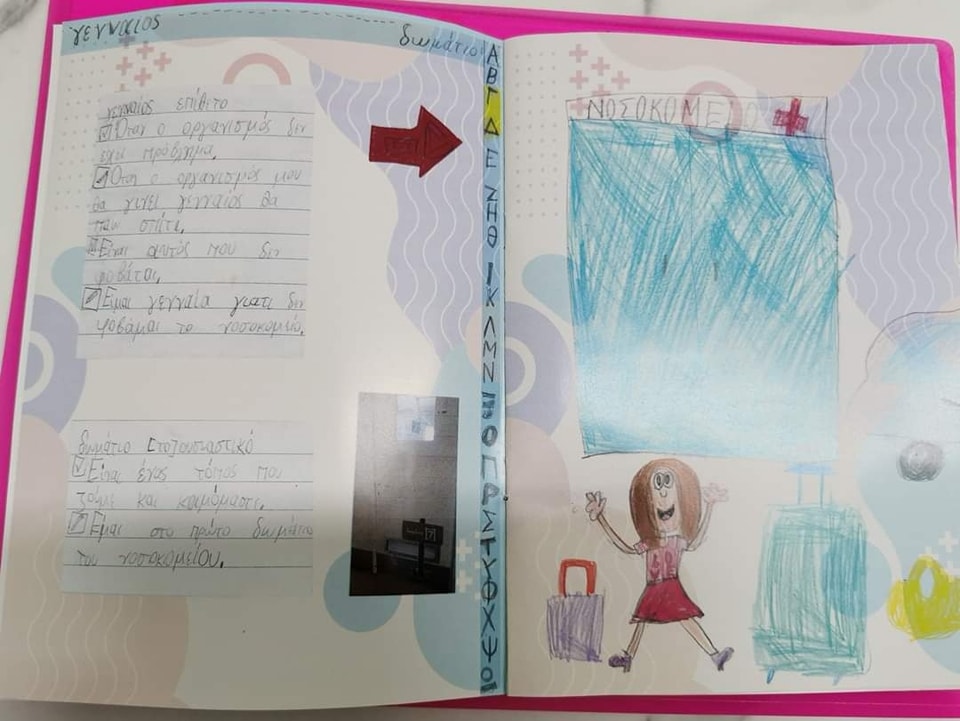 γενναίος
δωμάτιο
γενναίος επίθετο
Όταν ο οργανισμός δεν
έχει πρόβλημα.
Όταν ο οργανισμός μου
θα γίνει γενναίος θα
πάω σπίτι.
Είναι αυτός που δεν
φοβάται.
Είμαι γενναία γιατί δεν
φοβάμαι το νοσοκομείο.
δωμάτιο
Είναι ένας τόπος που
ζούμε και κοιμόμαστε.
Είμαι στο πρώτο δωμάτιο
του νοσοκομείου.
Α
Β
Γ
Δ
Ε
Ζ
Η
Θ
Ι
Κ
Λ
Μ
Ν
Ξ
Ο
Π
Ρ
Σ
Τ
Υ
Φ
Χ
Ψ
Ω
ΝΟΣΟΚΟΜΕΙΟ